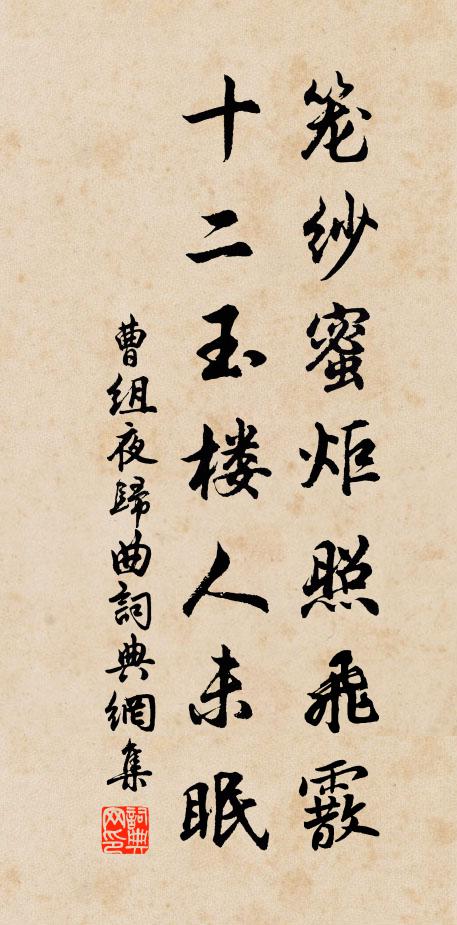 笼纱蜜炬照飛霰
十二玉楼人未眠
曹组夜歸曲詞典網集
詞典
网印